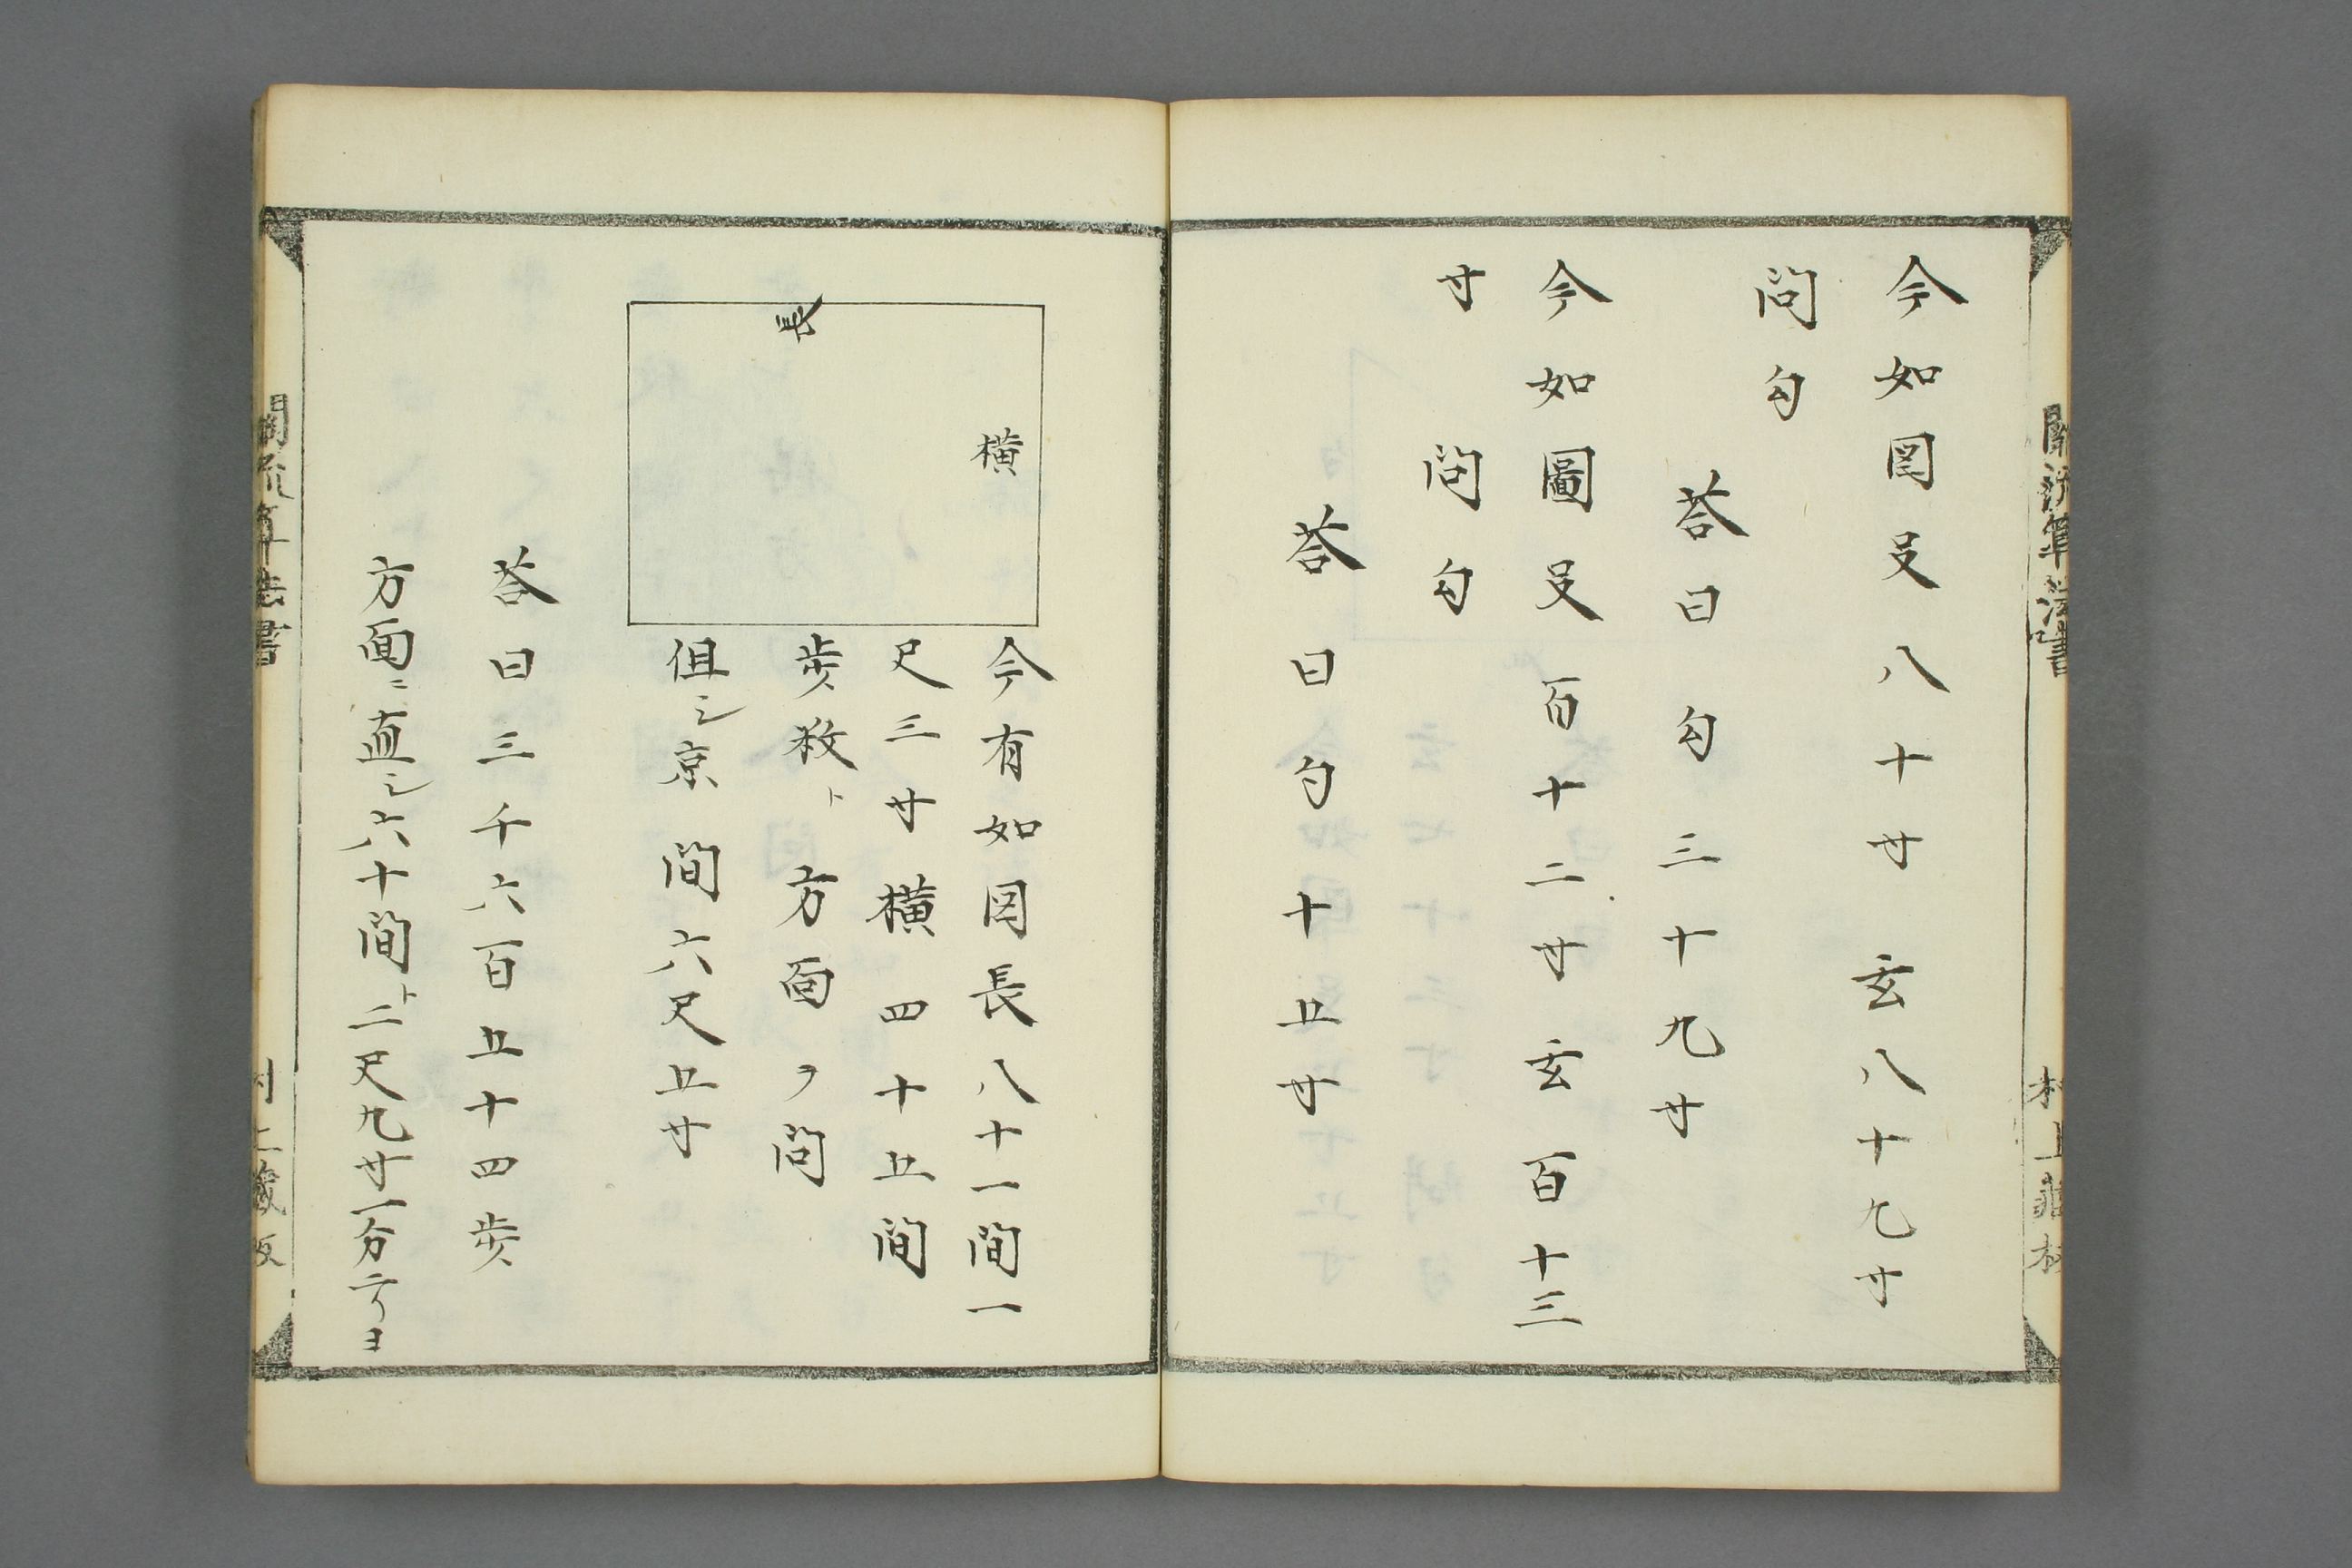 今如図𠬝八十寸 玄八十九寸
問勾
荅曰勾三十九寸
今如圖𠬝百十二寸玄百十三
寸 問勾
荅曰勾十五寸
横
長
今有如図長八十一間一
尺三寸横四十五間
歩数ト方面ヲ問
但シ京間六尺五寸
荅曰三千六百五十四歩
方面ニ直シ六十間ト二尺九寸一分
關流算法書